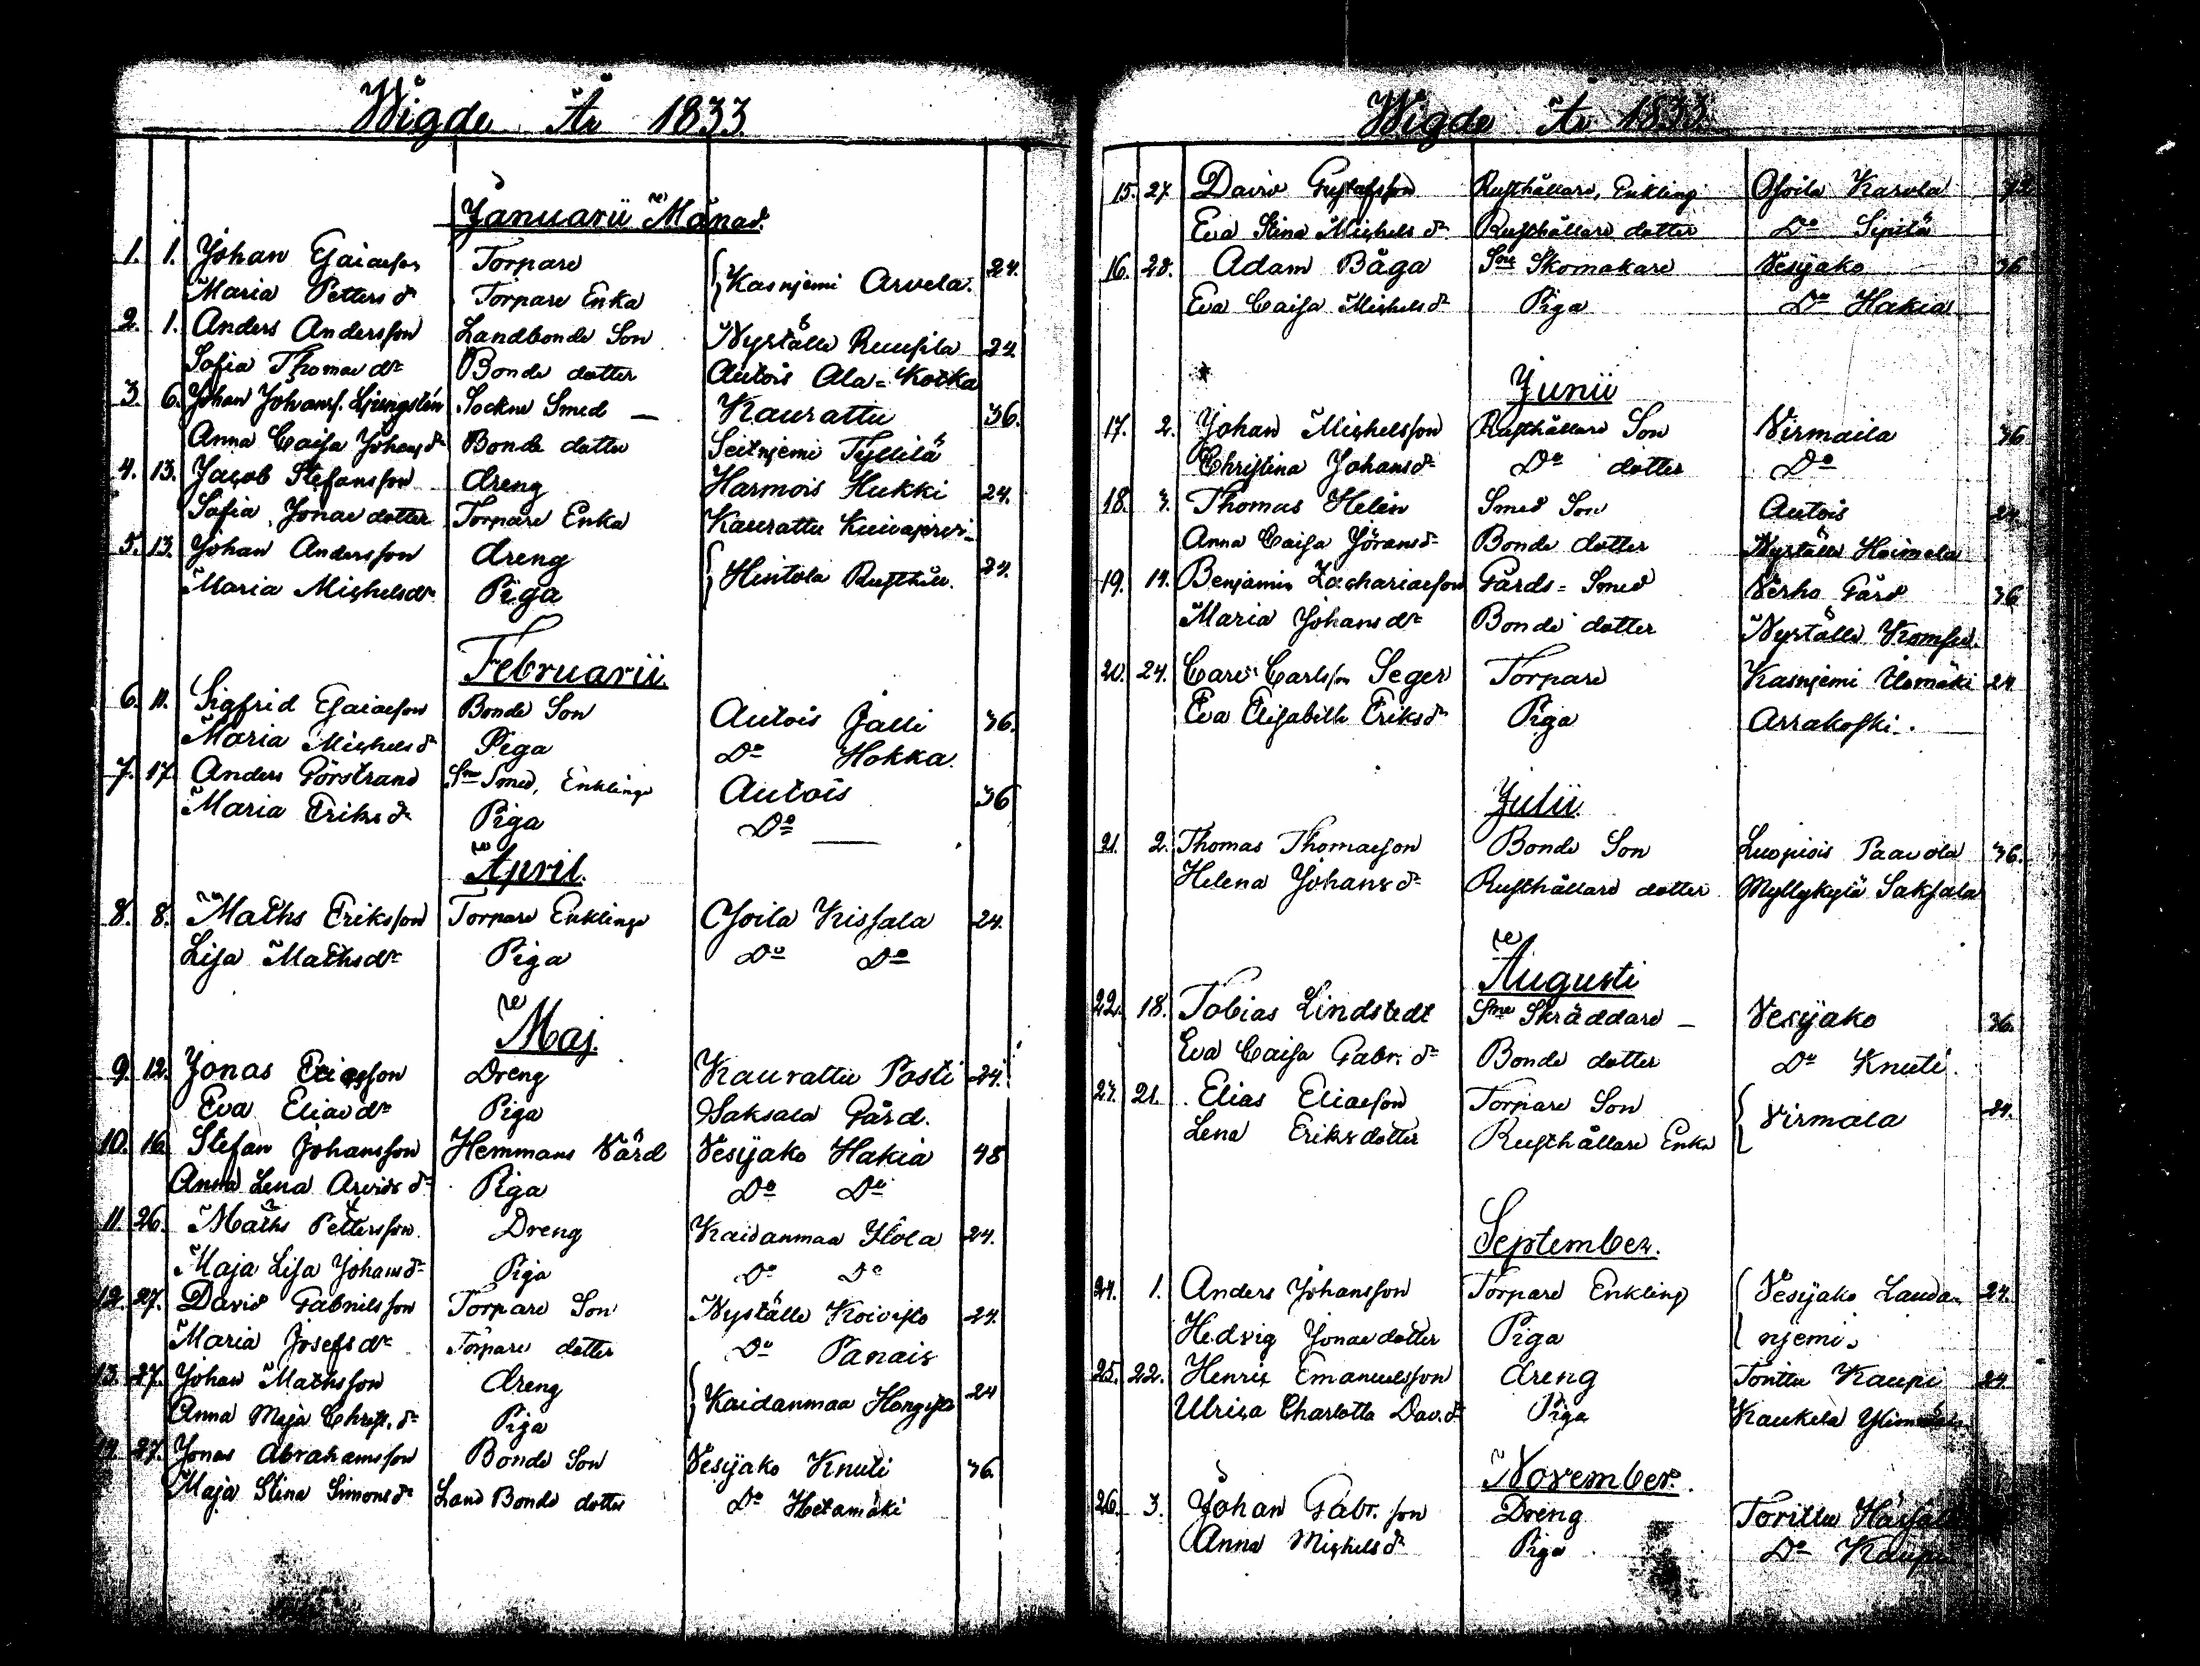 Wigde År 1833
Januarii Månad.
1. 1. Johan Esaiaeson Torpare
Maria Petters dr Torpare Enka Kasnjemi Arvela. 24.
2. 1. Anders Andersson Landbonde Son Nyställe Ruusila 24.
Sofia Thomae dr Bonde dotter Autois Ala=Kotka
3. 6. Johan Johanss. Ljungstén Sockne Smed — Kaurattu 36.
Anna Caisa Johans dr Bonde dotter Seitnjemi Tyllilä
4. 13. Jacob Stefansson dreng Harmois Hukki 24.
Sofia Jonae dotter Torpare Enka Kaurattu
5. 13. Johan Andersson dreng
Maria Michelsdr Piga Hintola Rusthåll. 24.
Februarii.
6. 11. Sigfrid Esaiaeson Bonde Son Autois Jalli 36.
Maria Michels dr Piga Do Hokka.
7. 17. Anders Görstrand Sne Smed, Enkling Autois 36
Maria Eriks dr Piga Do
April.
8. 8. Maths Eriksson Torpare Enkling Osoila Kissala 24.
Lisa Mathsdr Piga Do Do
Maj.
9. 12. Jonas Dreng Kaurattu Pasti 24.
Eva Eliae dr Piga Saksala Gård.
10. 16. Stefan Johansson Hemmans Värd Vesijako Hakia 48
Anna Lena Arvids dr Piga Do Do
11. 26. Maths Pettersson Dreng Kaidanmaa 24.
Maja Lisa Johans dr Piga Do Do
12. 27. David Gabrielsson Torpare Son Nyställe Koivisto 24.
Maria Josefs dr Torpare dotter Do Panais
13. 27. Johan Mathsson dreng
Anna Maja Christ. dr Piga Kaidanmaa Hongisto 24
14. 27. Jonas Abrahamsson Bonde Son Vesijako Knuti 36
Maja Stina Simons dr Land Bonde dotter Do Hietamäki
Wigde År 1833.
15. 27 David Gustafsson Rusthållare, Enkling Osoila Karvla 72
Eva Stina Michels dr Rusthållare dotter Do Sipilä
16. 28. Adam Båga Sne Skomakare Vesijako 36
Eva Caisa Michels dr Piga Do Hakia
Junii
17. 2. Johan Michelsson Rusthållare Son Virmaila 36
Christina Johans dr Do dotter Do
18. 3. Thomas Helin Smed Son Autois 24
Anna Caisa Jörans dr Bonde dotter Nyställe Heimola
19. 14. Benjamin Zachariaeson Gårds=Smed Verho Gård 36
Maria Johans dr Bonde dotter Nyställe Komsu.
20. 24. Carl Carlsson Seger Torpare Kasnjemi 24
Eva Elisabeth Eriks dr Piga Arrakoski.
Julii.
21. 2. Thomas Thomaeson Bonde Son Luopiois Paavola 36.
Helena Johans dr Rusthållare dotter Myllykylä Saksala
Augusti
22. 18. Tobias Lindstedt Sne Skräddare — Vesijako 36.
Eva Caisa Gabr. dr Bonde dotter Do Knuti.
23. 21. Elias Eliaeson Torpare Son
Lena Eriks dotter Rusthållare Enka Virmala 24.
September.
24. 1. Anders Johansson Torpare Enkling Vesijako Lauda= 24.
Hedvig Jonae dotter Piga njemi.
25. 22. Henric Emanuelsson dreng Torittu Kaupi 24.
Ulrica Charlotta Dav. dr Piga Kaukela
November.
26. 3. Johan Gabr. son Dreng Torittu
Anna Michels dr Piga Do Kaupi